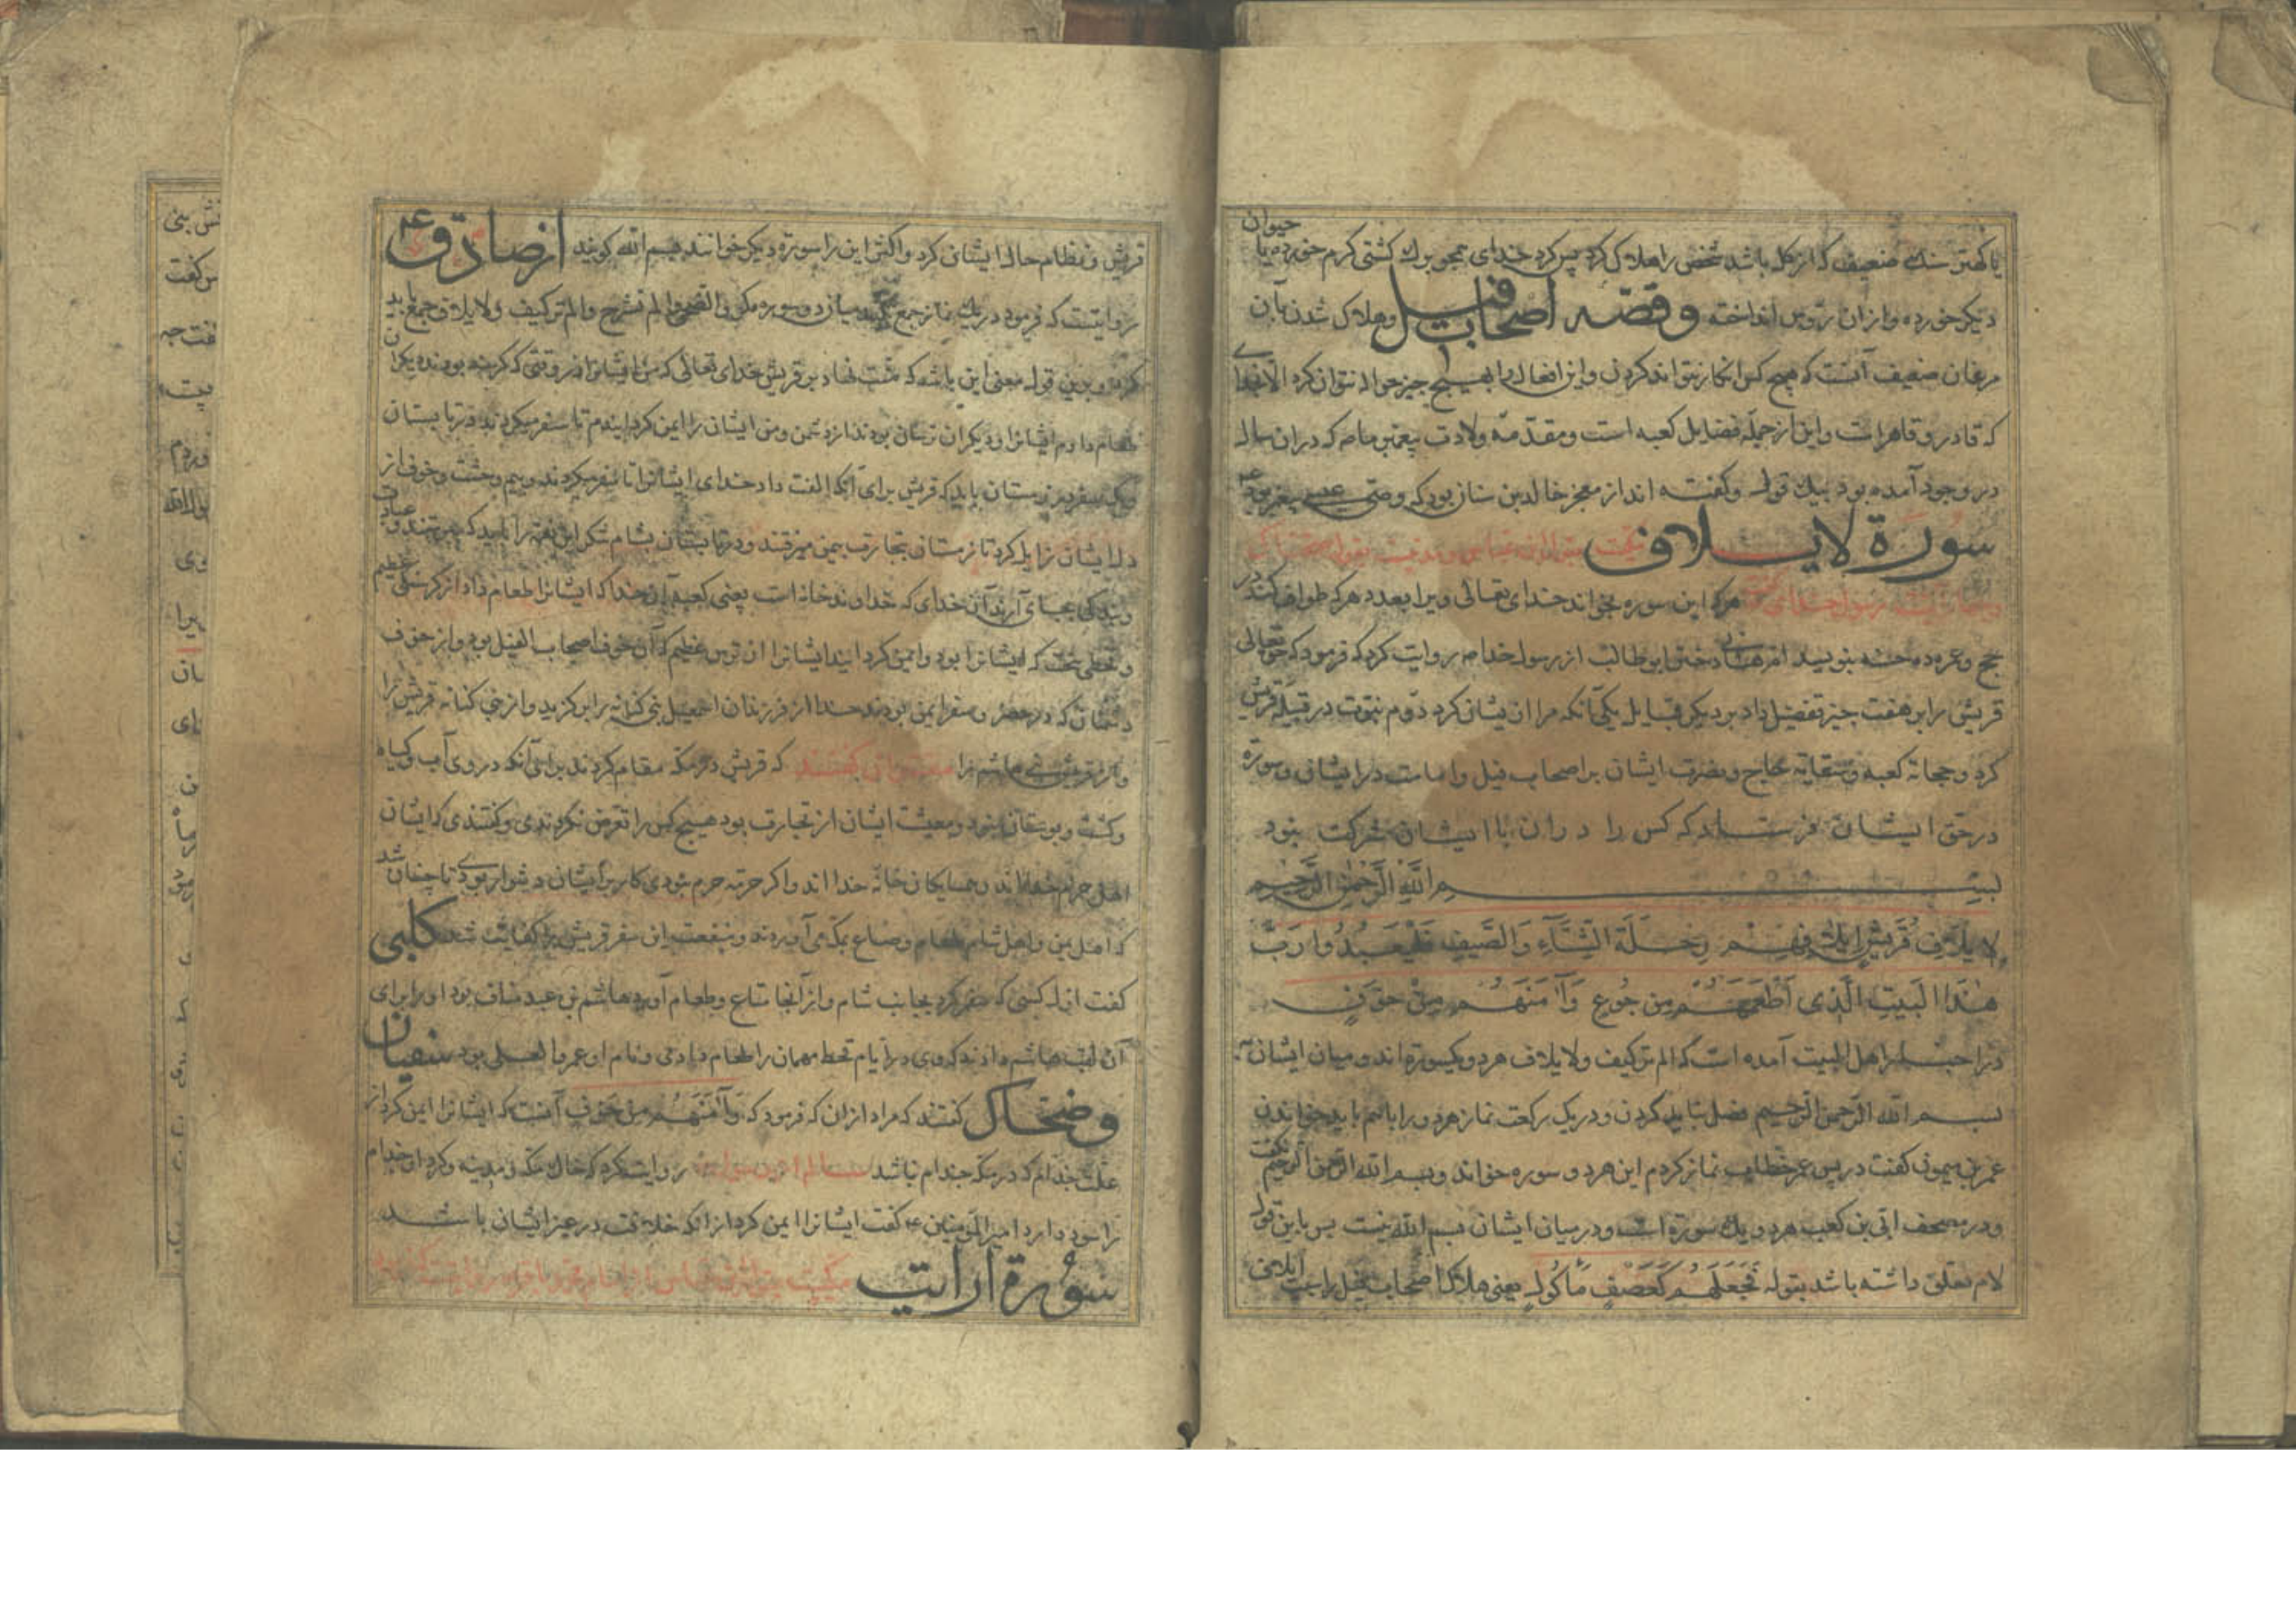 یا کهتر سنگی ضعیف که از کل باشد شخص را هلاک کرد پس کرد خدای همچو برک کشتی کرم خورده یا حیوان
دیکر خورده و از ان روس انداخته وقصّه اصحاب فیل و هلاک شدن بآن
مرغان ضعیف آنست که هیچ کس انکار نتواند کردن و این افعال را بهیچ چیز حواله نتوان کرد الا بخدا
که قادر و قاهر است و این از جمله فضایل کعبه است و مقدّمه ولادت پیغمبر ما ص که دران سال
در وجود آمده بود بیک قول و کفته اند از معجز خالد بن سنان بود که وصی عیسی پیغمبر بود
سورة لایلاف
هرکه این سوره بخواند خدای تعالی ویرا بعدد هرکه طواف کند در
حج و عمره ده حسنه بنویسد ام هانی دختر ابو طالب از رسول خدا ص روایت کرد که فرمود که حق تعالی
قریش را بر هفت چیز تفضیل داد بر دیکر قبایل یکی آنکه مرا از یشان کرد دوّم نبوّت در قبیله قریش
کرد و حجابة کعبه و سقایة حاج و نصرت ایشان بر اصحاب فیل و امامت در ایشان و سورة
در حق ایشان فرستاد که کس را دران با ایشان شرکت نبود
بسم الله الرّحمن الرّحیم
لایلاف قُرَیش ایلافهم رِحلَةَ الشِّتَآءِ وَالصَّیفِ فَلیَعبُدُوا رَبَّ
هٰذَا البَیتِ الَّذِی أَطعَمَهُم مِن جُوعٍ وَآمَنَهُم مِن خَوفٍ
در اخبار اهل البیت آمده است که الم ترکیف و لایلاف هر دو یکسوره اند و میان ایشان به
بسم الله الرّحمن الرّحیم فصل نباید کردن و در یک رکعت نماز هر دو را باهم باید خواندن
عمر بن میمون کفت در پس عمر خطاب نماز کردم این هر دو سوره خواند و بسم الله الرّحمن الرّحیم نکفت
و در مصحف ابی بن کعب هر دو یک سورة است و در میان ایشان بسم الله نیست پس باین قول
لام تعلق داشته باشد بقوله فَجَعَلَهُم کَعَصفٍ مَأکُول یعنی هلاک اصحاب فیل را جهت ایلاف
قریش و نظام حال ایشان کرد و اکثر این را سورة دیکر خوانند بسم الله کویند از صادق ع
روایتست که فرمود در یک نماز جمع میان دو سوره مکر والضحی و الم نشرح و الم ترکیف و لایلاف جمع باید
کرد و بدین قول معنی این باشد که منّت نهاد بر قریش خدای تعالی که من ایشانرا در وقتی که کرسنه بودند
طعام دادم ایشانرا و دیکران ترسان بودند از دشمن و من ایشان را ایمن کردانیدم تا سفر میکردند در تابستان
زمستان باید که قریش برای آنکه الفت داد خدای ایشانرا تا سفر میکردند و بیم و وحشت و خوف از
دل ایشان زایل کرد تا زمستان بتجارت بیمن میرفتند و در تابستان بشام شکر این نعمة را باید که عبادت
وبندکی بجای آرند آن خدای که خداوند خانه است یعنی کعبه آن خدا که ایشانرا طعام داد از کرسنکی عظیم
و قحطی سخت که ایشانرا بود و ایمن کردانید ایشانرا از ترس عظیم که آن خوف اصحاب الفیل بود و از خوف
دشمنان که در حضر و سفر ایمن بودند خدا از فرزندان اسمعیل بنی کنانه را بر کزید و از بنی کنانه قریش را
و از قریش بنی هاشم را که قریش در مکه مقام کردند برای آنکه در وی آب و کیاه
وکشت و بوستان نبود و معیشت ایشان از تجارت بود هیچ کس را تعرض نکردندی و کفتندی که ایشان
اهل حرم خدااند و همسایکان خانه خدااند و اکر حرمة حرم نبودی کار بر ایشان دشوار بودی تا چنان شد
که اهل یمن و اهل شام طعام و متاع بمکه می آوردند و منفعت این سفر قریش را کفایت شد کلبی
کفت اول کسی که سفر کرد بجانب شام و از آنجا متاع و طعام آورد هاشم بن عبد مناف بود او را برای
آن لقب هاشم دادند که وی در ایام قحط مهمان را طعام دادی و نام او عمرو العلی بود سفیان
وضحاک کفتند که مراد ازان که فرمود که وَآمَنَهُم مِن خَوفٍ آنست که ایشانرا ایمن کرد از
علّت جذام که در مکه جذام نباشد روایت کرد که خاک مکه و مدینه و کرد او جذام
را سود دارد امیر المؤمنین ع کفت ایشانرا ایمن کرد از آنکه خلافت در غیر ایشان باشد
سورة ارایت